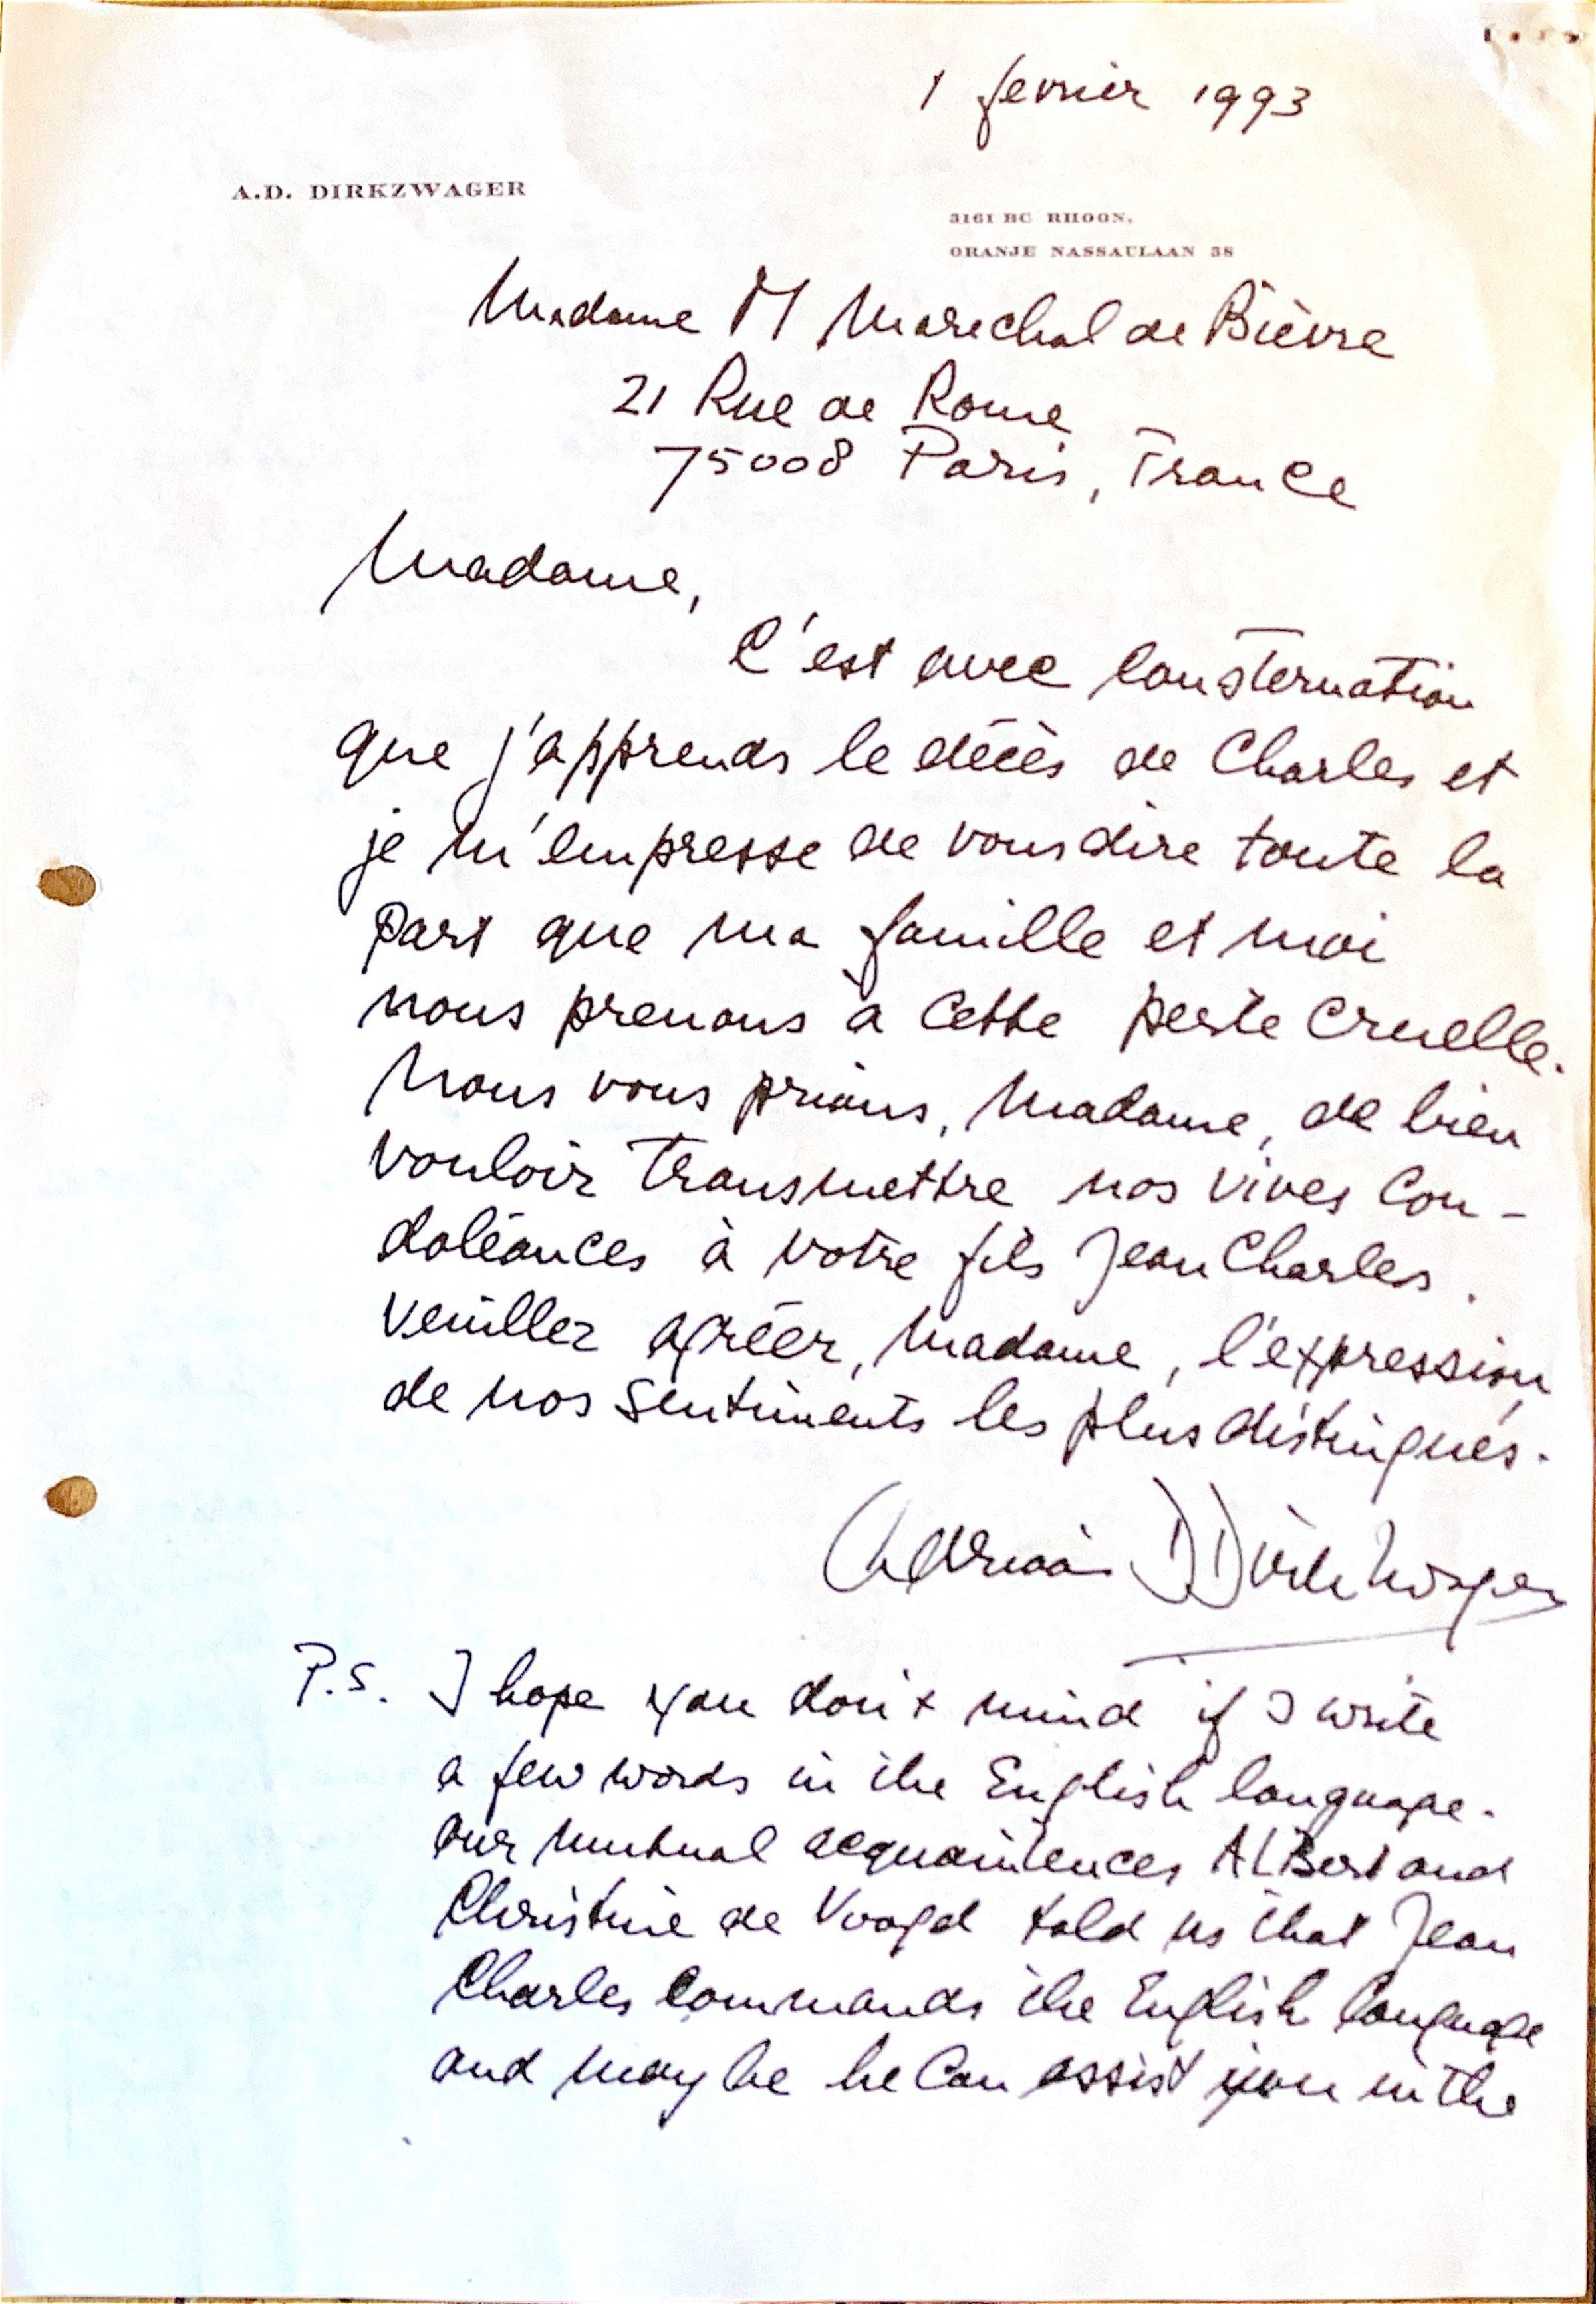 1 fevrier 1993
A.D. DIRKZWAGER
3161 BC RHOON.
ORANJE NASSAULAAN 38
Madame M Marechal de Bièvre
21 Rue de Rome
75008 Paris, France
Madame,
C'est avec consternation
que j'apprends le décès de Charles et
je m'empresse de vous dire toute la
part que ma famille et moi
nous prenons à cette perte cruelle.
Nous vous prions, Madame, de bien
vouloir transmettre nos vives con-
doléances à votre fils Jean Charles.
Veuillez agréer, Madame, l'expression
de nos sentiments les plus distingués.
Adriaan D Dirkzwager
P.S. I hope you don't mind if I write
a few words in the English language.
our mutual acquaintences ALBert and
Christine de Voogd told us that Jean
Charles commands the English language
and may be he can assist you in the